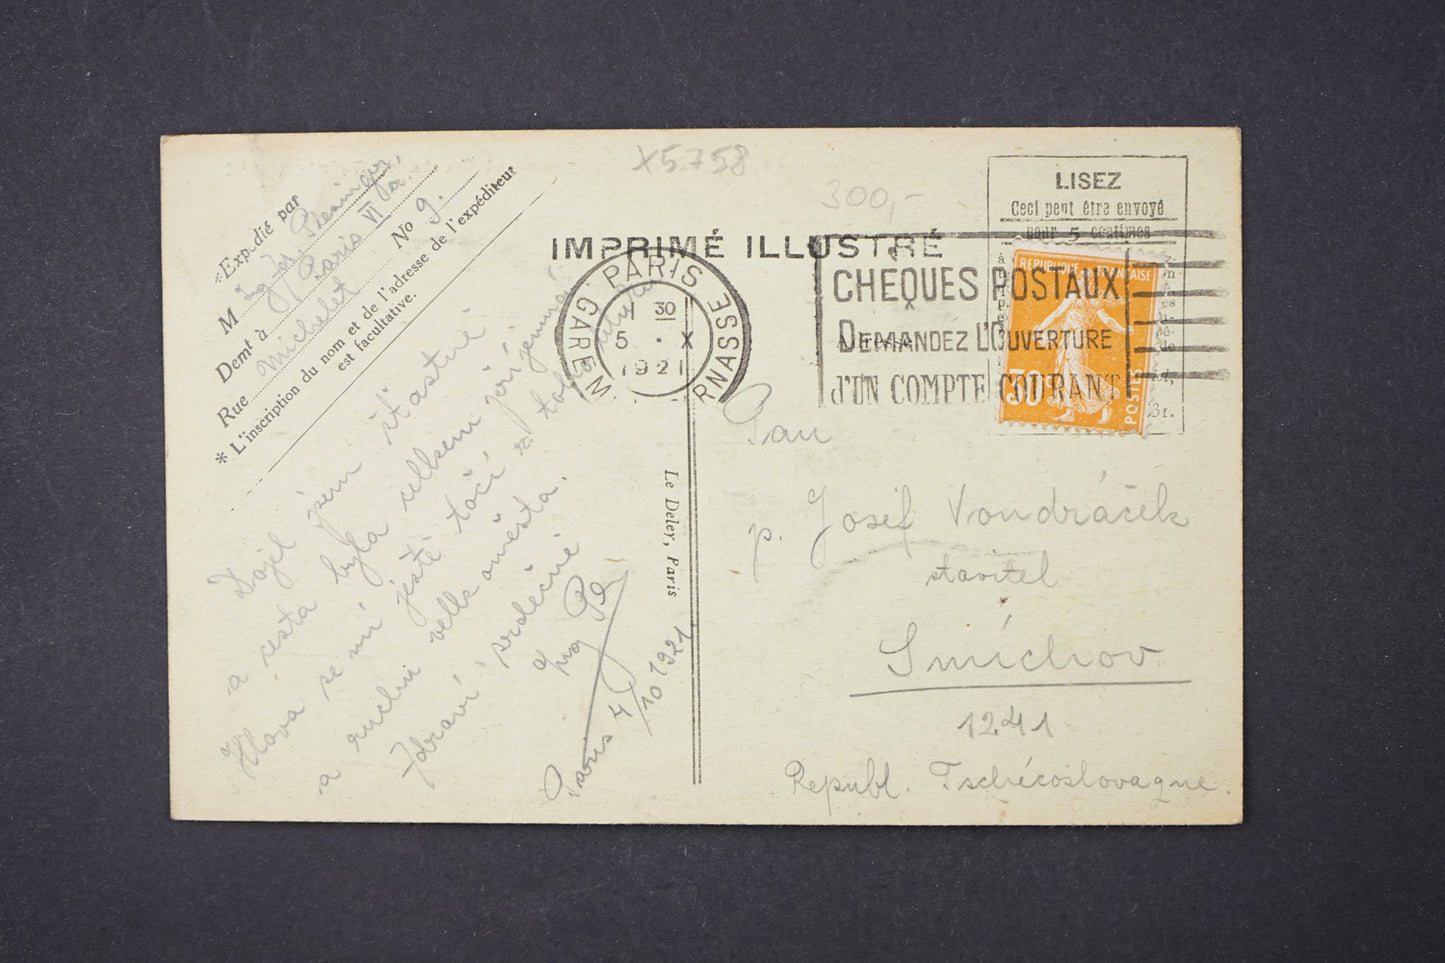 X5.758
300,-
*Expédié par
M Ig Jos Plesinger,
Demt à Paris VI
Rue Michelet No 9.
* L'inscription du nom et de l'adresse de l'expéditeur
est facultative.
IMPRIMÉ ILLUSTRÉ
LISEZ
Ceci peut être envoyé
pour 5 centimes
PARIS
GARE M RNASSE
1 30
5 · X
1921
CHEQUES POSTAUX
DEMANDEZ L'OUVERTURE
d'UN COMPTE COURANT
REPUBLIQUE FRANÇAISE
30c
POSTES
Dojel jsem šťastně
a cesta byla celkem příjemná.
Hlava se mi ještě točí z toho
a ruchu velkoměsta.
Zdraví srdečně
Paris 4/10 1921
Le Deley, Paris
Pan
p. Josef Vondráček
stavitel
Smíchov
1241
Republ. Tschécoslovaque.